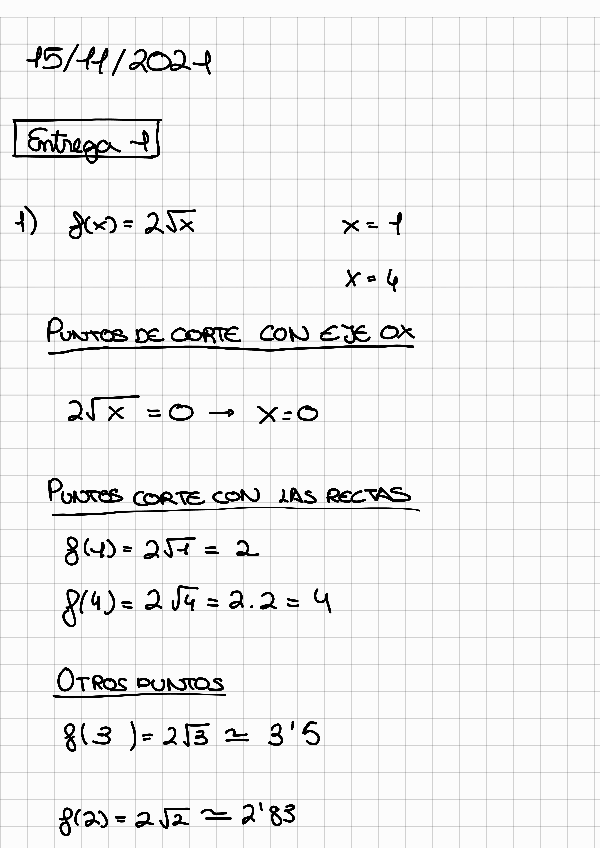 15/11/2021
Entrega 1
1) f(x) = 2√x x = 1
x = 4
PUNTOS DE CORTE CON EJE OX
2√x = 0 → x=0
PUNTOS CORTE CON LAS RECTAS
f(1) = 2√1 = 2
f(4) = 2√4 = 2.2 = 4
OTROS PUNTOS
f(3 ) = 2√3 ≃ 3'5
f(2) = 2√2 ≃ 2'83